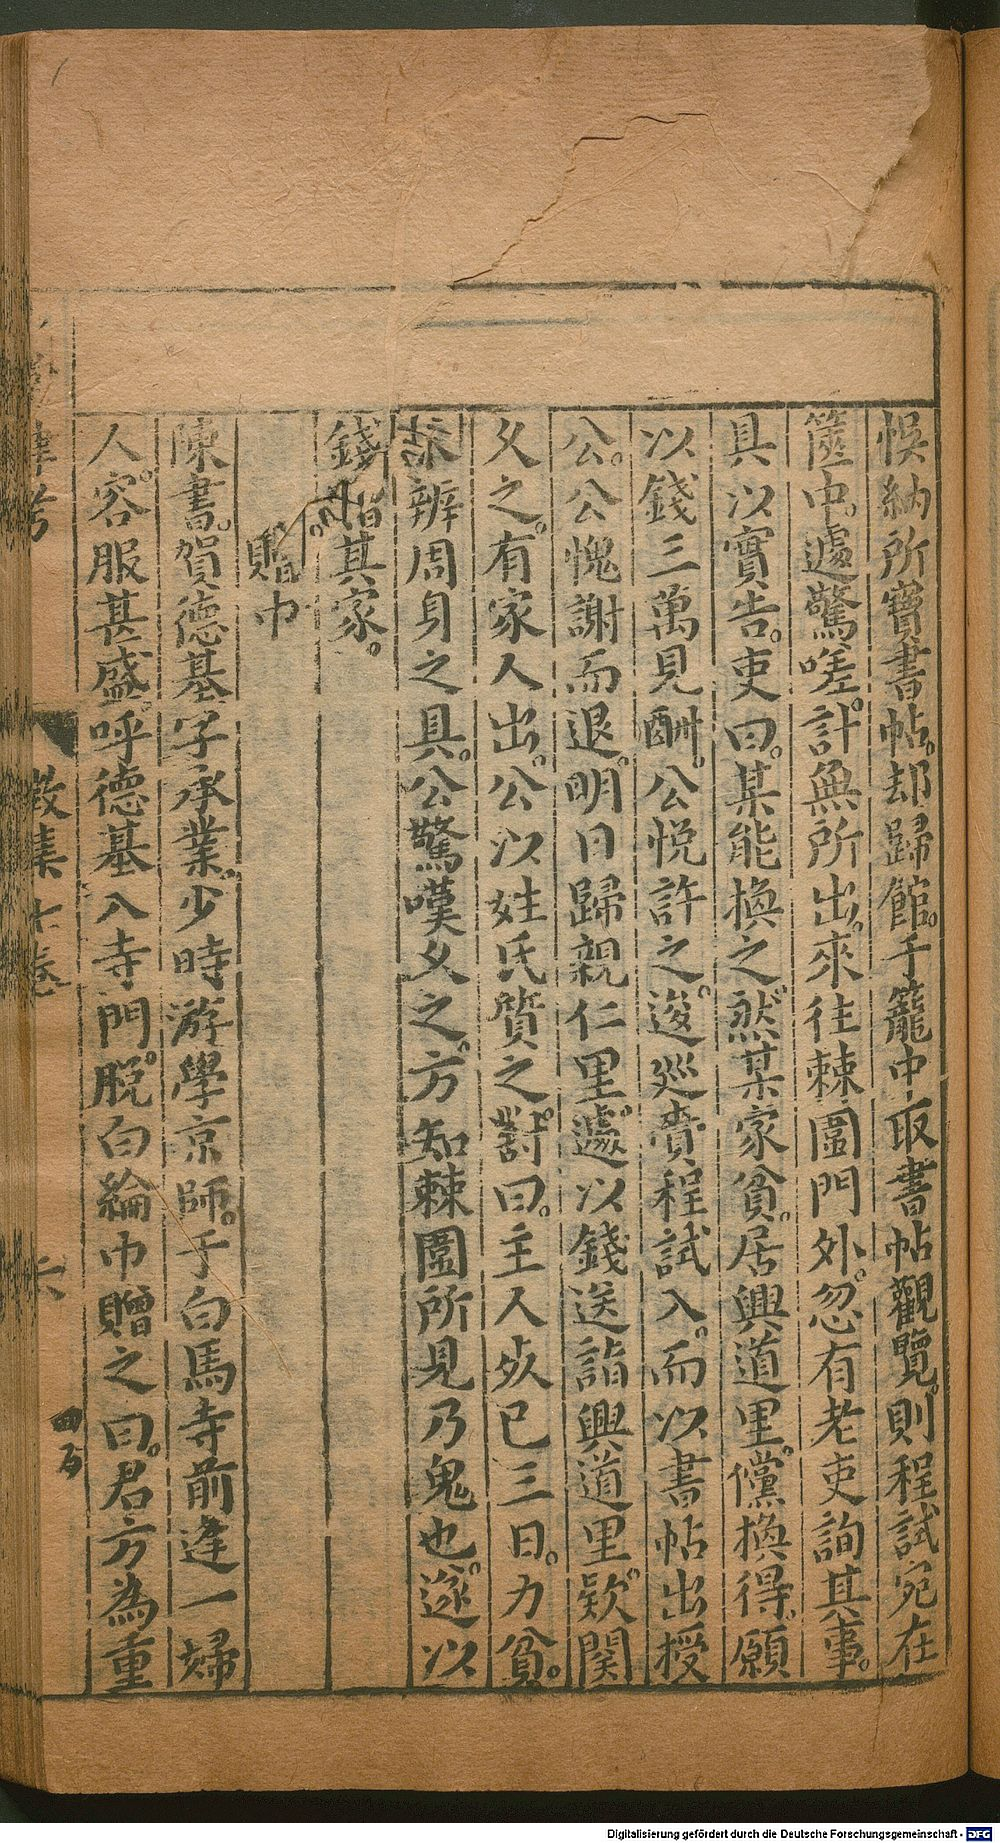 悞納所寳書帖却歸館于籠中取書帖觀覽則程試宛在
篋中遽驚嗟計無所出來往棘圍門外忽有老吏詢其事
具以實告吏曰某能換之然某家貧居興道里儻換得願
以錢三萬見酬公悅許之逡巡賫程試入而以書帖出授
公公愧謝而退明日歸親仁里遽以錢送詣興道里欵関
乆之有家人出公以姓氏質之對曰主人歿已三日力貧
未辨周身之具公驚嘆乆之方知棘圍所見乃鬼也遂以
錢 其家
贈巾
陳書賀德基字承業少時游學京師于白馬寺前逢一婦
人容服甚盛呼德基入寺門脫白綸巾贈之曰君方為重
數集 七卷 六
四百
Digitalisierung gefördert durch die Deutsche Forschungsgemeinschaft - DFG